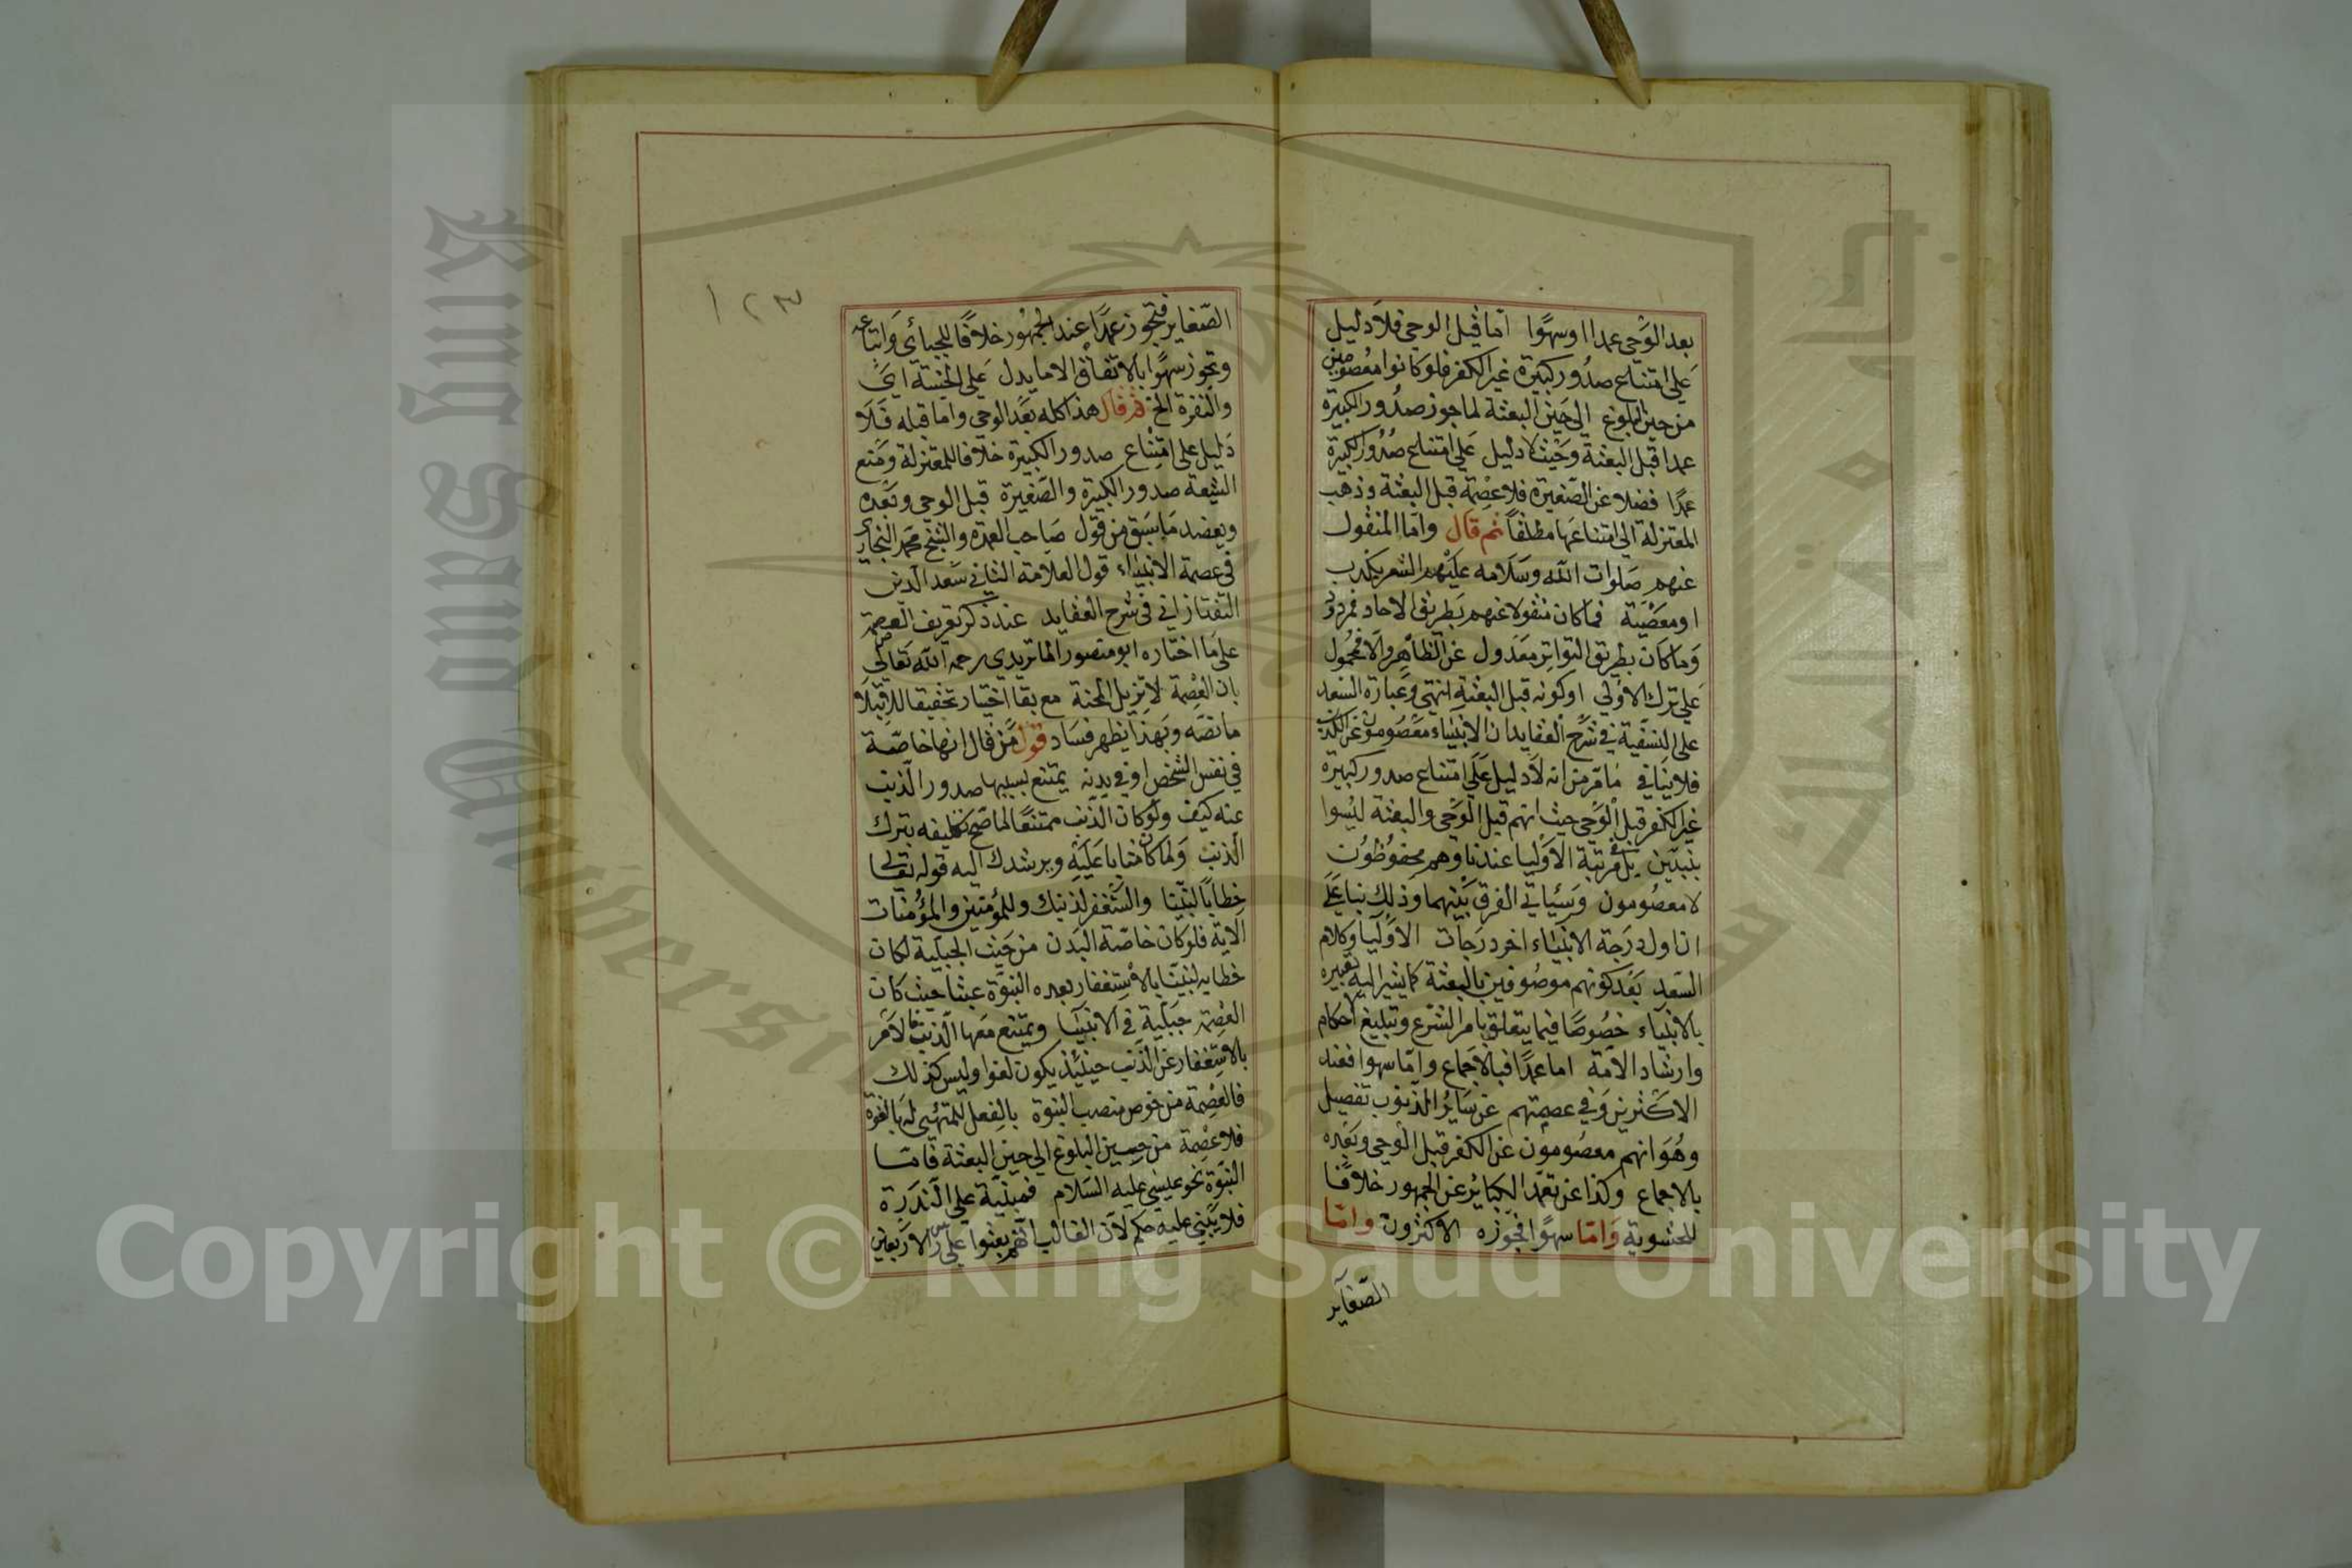 بعد الوحي عمدا اوسهوا اما قبل الوحي فلا دليل
على امتناع صدور كبيرة غير الكفر فلو كانوا معصومين
من حين البلوغ الى حين البعثة لما جوز صدور الكبيرة
عمدا قبل البعثة وحيث لا دليل على امتناع صدور الكبيرة
عمدا فضلا عن الصغيرة فلا عصمة قبل البعثة وذهب
المعتزلة الى امتناعها مطلقا ثم قال واما المنقول
عنهم صلوات الله وسلامه عليهم الشعر بكذب
او معصية فما كان منقولا عنهم بطريق الاحاد فمردود
وما كان بطريق التواتر معدول عن الظاهر والا فمحمول
على ترك الاولى او كونه قبل البعثة انتهى وعبارة السعد
على النسفية في شرح العقايد ان الانبياء معصومون عن الكذب
فلا ينافي مامر من انه لا دليل على امتناع صدور كبيرة
غير الكفر قبل الوحي حيث انهم قبل الوحي والبعثة ليسوا
بنبيين بل في رتبة الاوليا عندنا وهم محفوظون
لا معصومون وسياتي الفرق بينهما وذلك بنا على
ان اول درجة الانبياء اخر درجات الاوليا وكلام
السعد بعد كونهم موصوفين بالبعثة كما يشير اليه تعبيره
بالانبياء خصوصا فيما يتعلق بامر الشرع وتبليغ الاحكام
وارشاد الامة اما عمدا فبالاجماع واما سهوا فعند
الاكثرين وفي عصمتهم عن سائر الذنوب تفصيل
وهو انهم معصومون عن الكفر قبل الوحي وبعده
بالاجماع وكذا عن تعمد الكبائر عن الجمهور خلافا
للحشوية واما سهوا فجوزه الاكثرون واما
الصغاير
١٢٣
الصغاير فتجوز عمدا عند الجمهور خلافا للجبائي واتباعه
وتجوز سهوا بالاتفاق الا ما يدل على الخسة اي
والنفرة الخ ثم قال هذا كله بعد الوحي واما قبله فلا
دليل على امتناع صدور الكبيرة خلافا للمعتزلة ومنع
الشيعة صدور الكبيرة والصغيرة قبل الوحي وبعده
ويعضد ما سبق من قول صاحب العمدة والشيخ محمد النجاري
في عصمة الانبياء قول العلامة الثاني سعد الدين
التفتازاني في شرح العقايد عند ذكر تعريف العصمة
على ما اختاره ابو منصور الماتريدي رحمه الله تعالى من
بان العصمة لا تزيل المحنة مع بقا اختيار تحقيقا للابتلا
ما نصه وبهذا يظهر فساد قول من قال انها خاصة
في نفس الشخص او في بدنه يمتنع بسببها صدور الذنب
عنه كيف ولو كان الذنب ممتنعا لما صح تكليفه بترك
الذنب ولما كان مثابا عليه ويرشدك اليه قوله تعالى
خطابا لنبينا واستغفر لذنبك وللمؤمنين والمؤمنات
الاية فلو كان خاصة البدن من حيث الجبلية لكان
خطابه لنبينا بالاستغفار بعده النبوة عبثا حيث كان
العصمة جبلية في الانبيا ويمتنع معها الذنب فالامر
بالاستغفار عن الذنب حينئذ يكون لغوا وليس كذلك
فالعصمة من خوص منصب النبوة بالفعل للمتهئي له بالقوة
فلا عصمة من حين البلوغ الى حين البعثة فاما
النبوة نحو عيسى عليه السلام فمبنية على الندرة
فلا يبنى عليه حكم لان الغالب انهم بعثوا على راس الاربعين
King Saud University
Copyright © King Saud University